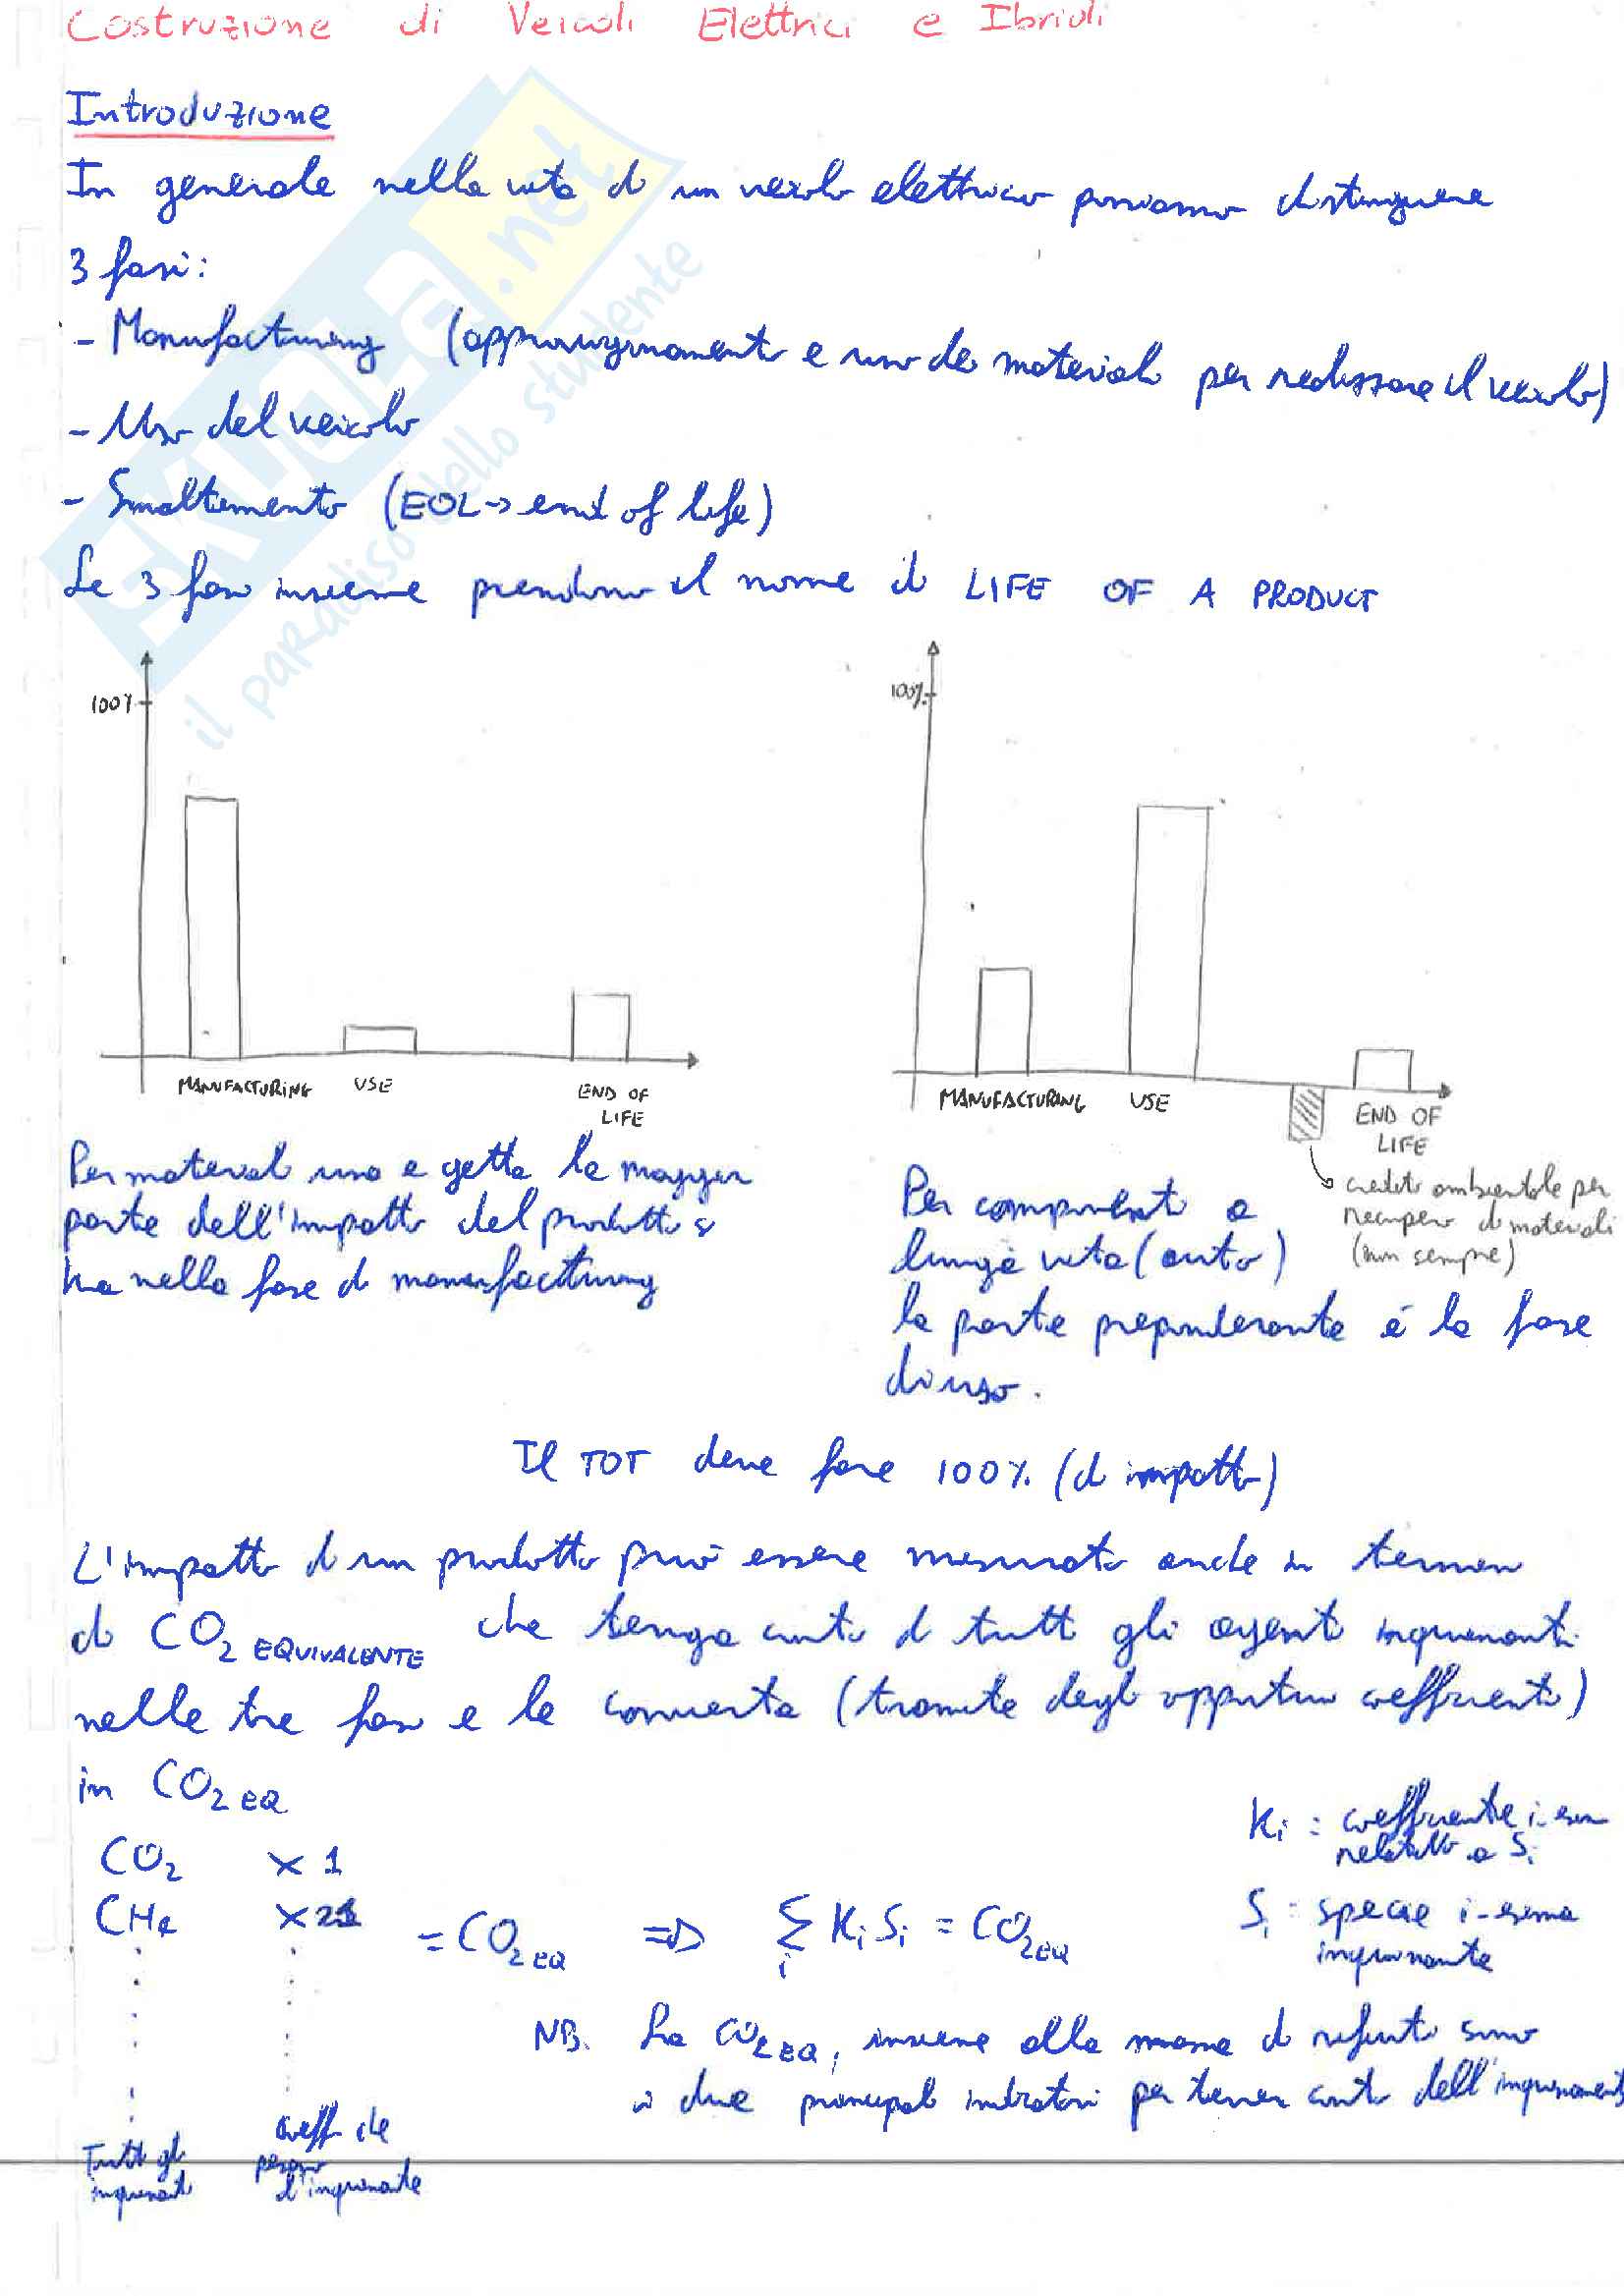 Costruzione di Veicoli Elettrici e Ibridi
Introduzione
In generale nella vita di un veicolo elettrico possiamo distinguere
3 fasi:
- Manufacturing (approvvigionamento e uso dei materiali per realizzare il veicolo)
- Uso del veicolo
- Smaltimento (EOL → end of life)
Le 3 fasi insieme prendono il nome di LIFE OF A PRODUCT
100%
MANUFACTURING USE END OF
LIFE
100%
MANUFACTURING USE END OF
LIFE
credito ambientale per
recupero di materiali
(non sempre)
Per materiali usa e getta la maggior
parte dell'impatto del prodotto si
ha nella fase di manufacturing
Per componenti a
lunga vita (auto)
la parte preponderante é la fase
di uso.
Il TOT deve fare 100% (di impatto)
L'impatto di un prodotto può essere misurato anche in termini
di CO2 EQUIVALENTE che tenga conto di tutti gli agenti inquinanti
nelle tre fasi e le converta (tramite degli opportuni coefficienti)
in CO2 EQ
CO2 × 1
CH4 × 21
= CO2 EQ ⇒ Σi Ki Si = CO2 EQ
Ki : coefficiente i-esimo
relativo a Si
Si : specie i-esima
inquinante
NB. La CO2 EQ, insieme alla massa di rifiuti sono
i due principali indicatori per tener conto dell'inquinamento
Tutti gli
inquinanti
coeff che
pesano
l'inquinante
SKUOLA.net
il paradiso dello studente